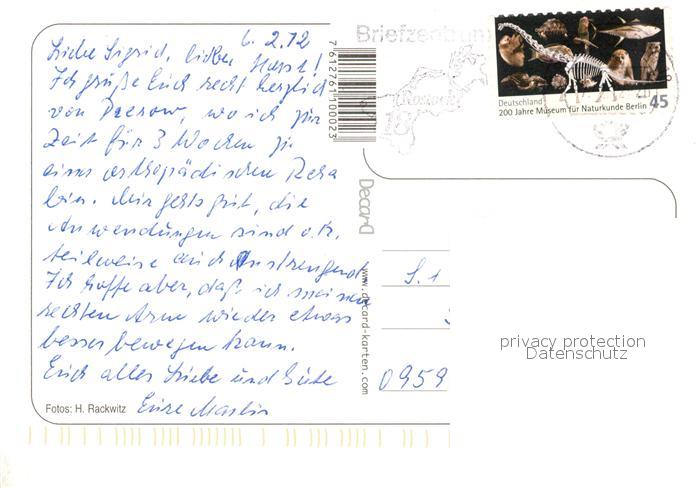 6.2.12
Liebe Sigrid, lieber Horst!
Ich grüße Euch recht herzlich
von Prerow, wo ich zur
Zeit für 3 Wochen zu
einer orthopädischen Reha
bin. Mir gehts gut, die
Anwendungen sind o.k.,
teilweise auch anstrengend.
Ich hoffe aber, daß ich meinen
rechten Arm wieder etwas
besser bewegen kann.
Euch alles Liebe und Gute
Eure
Fotos: H. Rackwitz
7612761100023
Decard
www.decard-karten.com
Briefzentrum
18
Deutschland
200 Jahre Museum für Naturkunde Berlin 45
S. 1
0959
privacy protection
Datenschutz